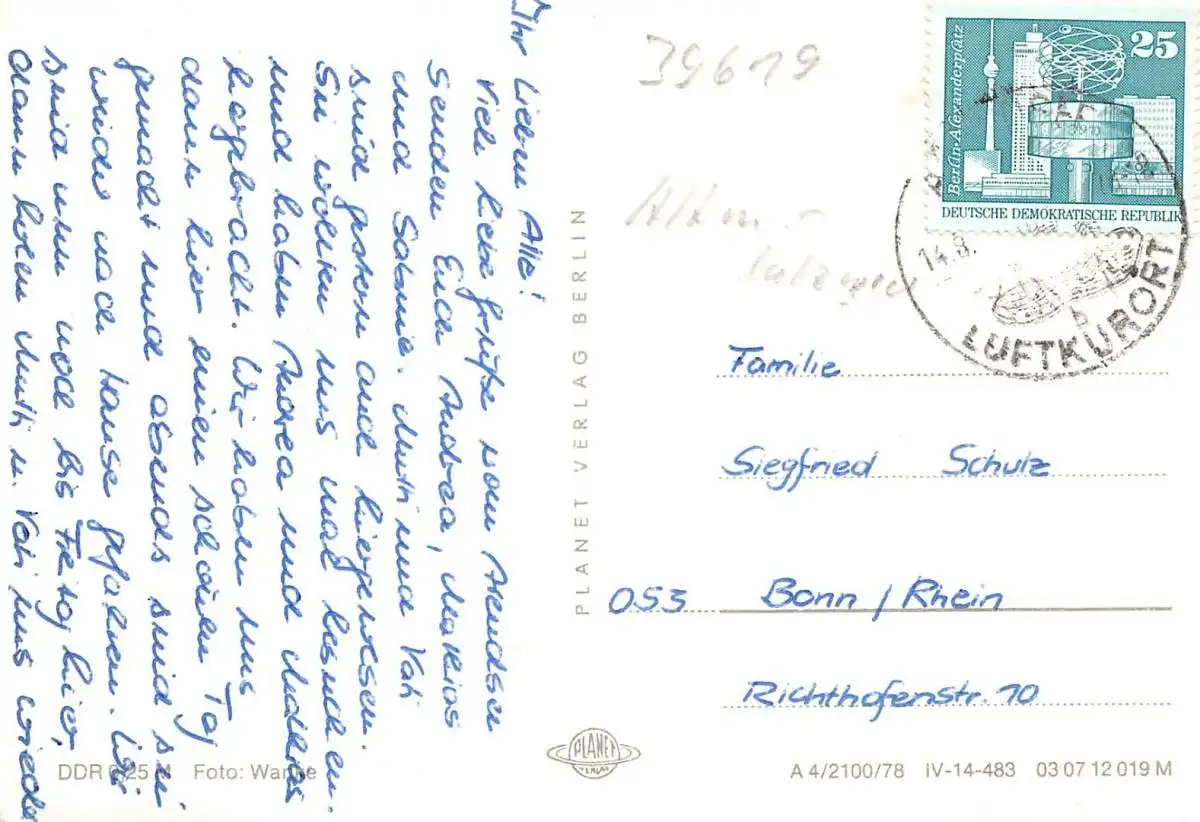 Ihr Lieben Alle!
Viele liebe Grüße vom Arendsee
senden Euch Andrea, Mathias
und Sabine. Mutti und Vati
sind gestern auch hiergewesen.
Sie wollten uns mal besuchen
und haben Andrea und Mathias
hergebracht. Wir haben uns
dann hier einen schönen Tag
gemacht und abends sind sie
wieder nach Hause gefahren. Wir
sind nun noch bis Freitag hier,
dann holen Mutti u. Vati uns wieder
DDR 0,25 M Foto: Wanke
PLANET VERLAG BERLIN
PLANET
VERLAG
39619
Berlin-Alexanderplatz
25
DEUTSCHE DEMOKRATISCHE REPUBLIK
14.8.
b
LUFTKURORT
Familie
Siegfried Schulz
053 Bonn / Rhein
Richthofenstr. 10
A 4/2100/78 IV-14-483 03 07 12 019 M